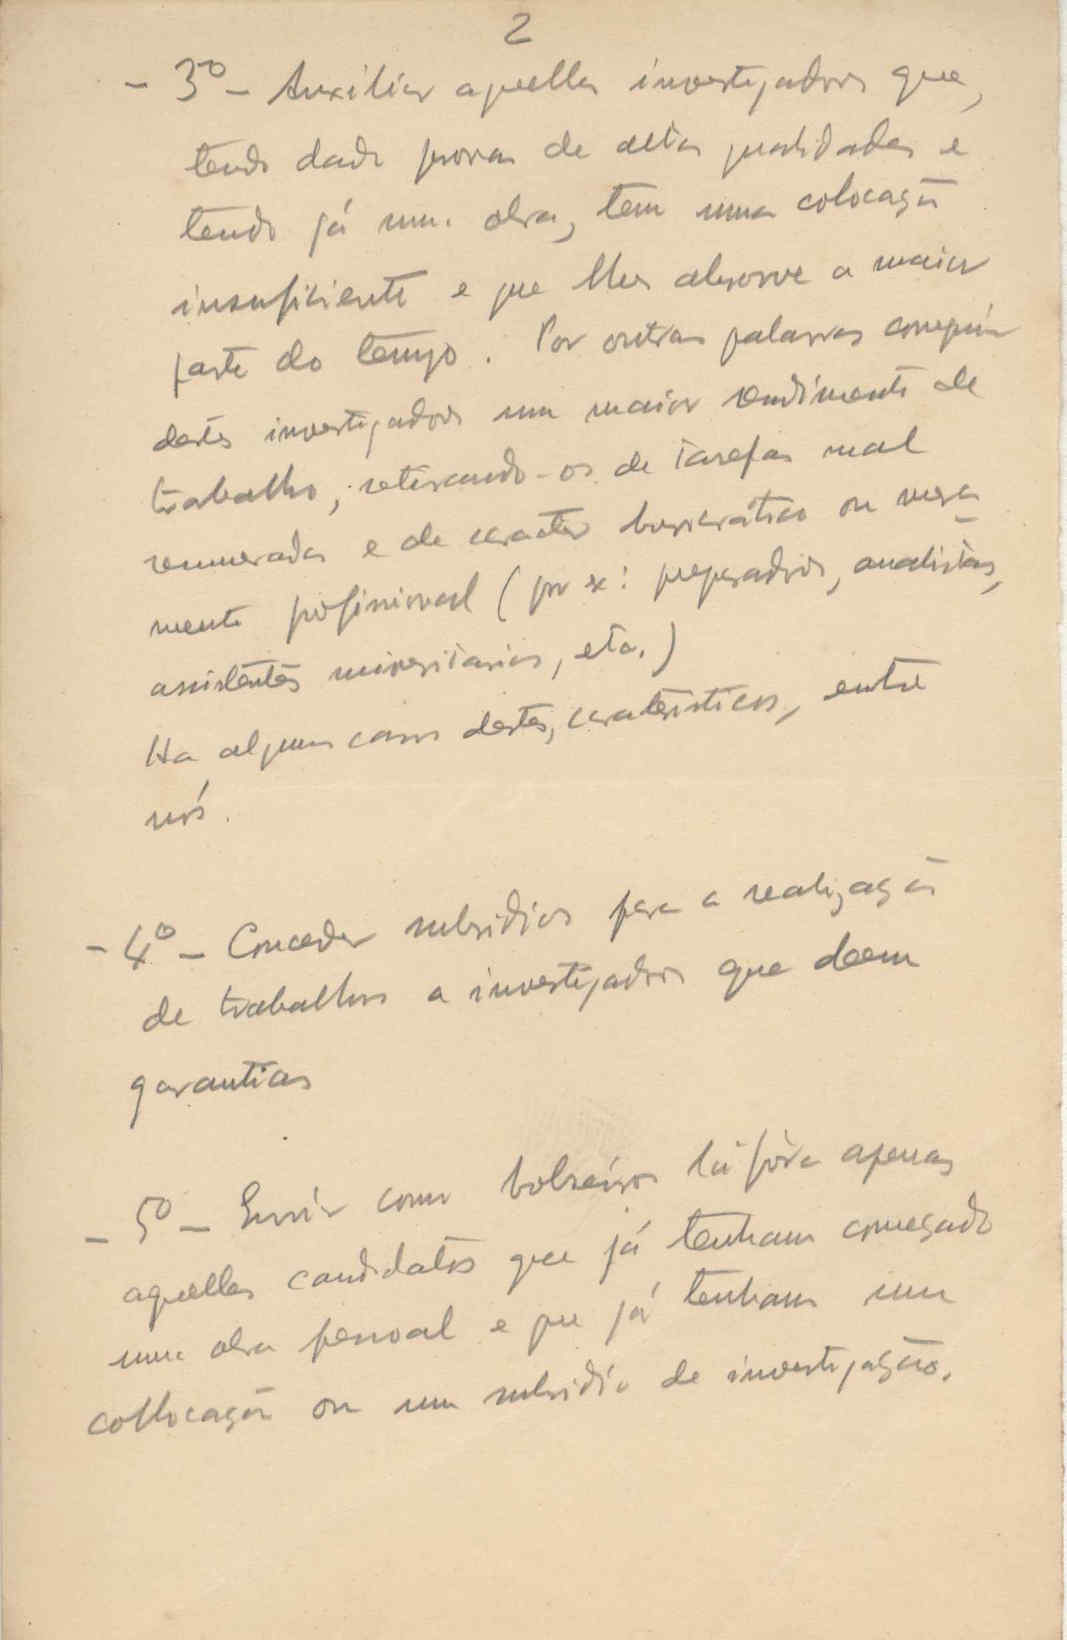 2
- 3º - Auxiliar aquelles investigadores que,
tendo dado provas de altas qualidades e
tendo já uma obra, tem uma colocação
insuficiente e que lhes absorve a maior
parte do tempo. Por outras palavras conseguir
destes investigadores um maior rendimento de
trabalho, retirando-os de tarefas mal
remuneradas e de caracter burocratico ou mera-
mente profissional (por ex: preparadores, analistas,
assistentes universitarios, etc.)
Ha alguns casos destes, carateristicos, entre
nós.
- 4º - Conceder subsidios para a realização
de trabalhos a investigadores que deem
garantias
- 5º - Enviar como bolseiros lá fóra apenas
aquelles candidatos que já tenham começado
uma obra pessoal e que já tenham uma
collocação ou um subsidio de investigação.